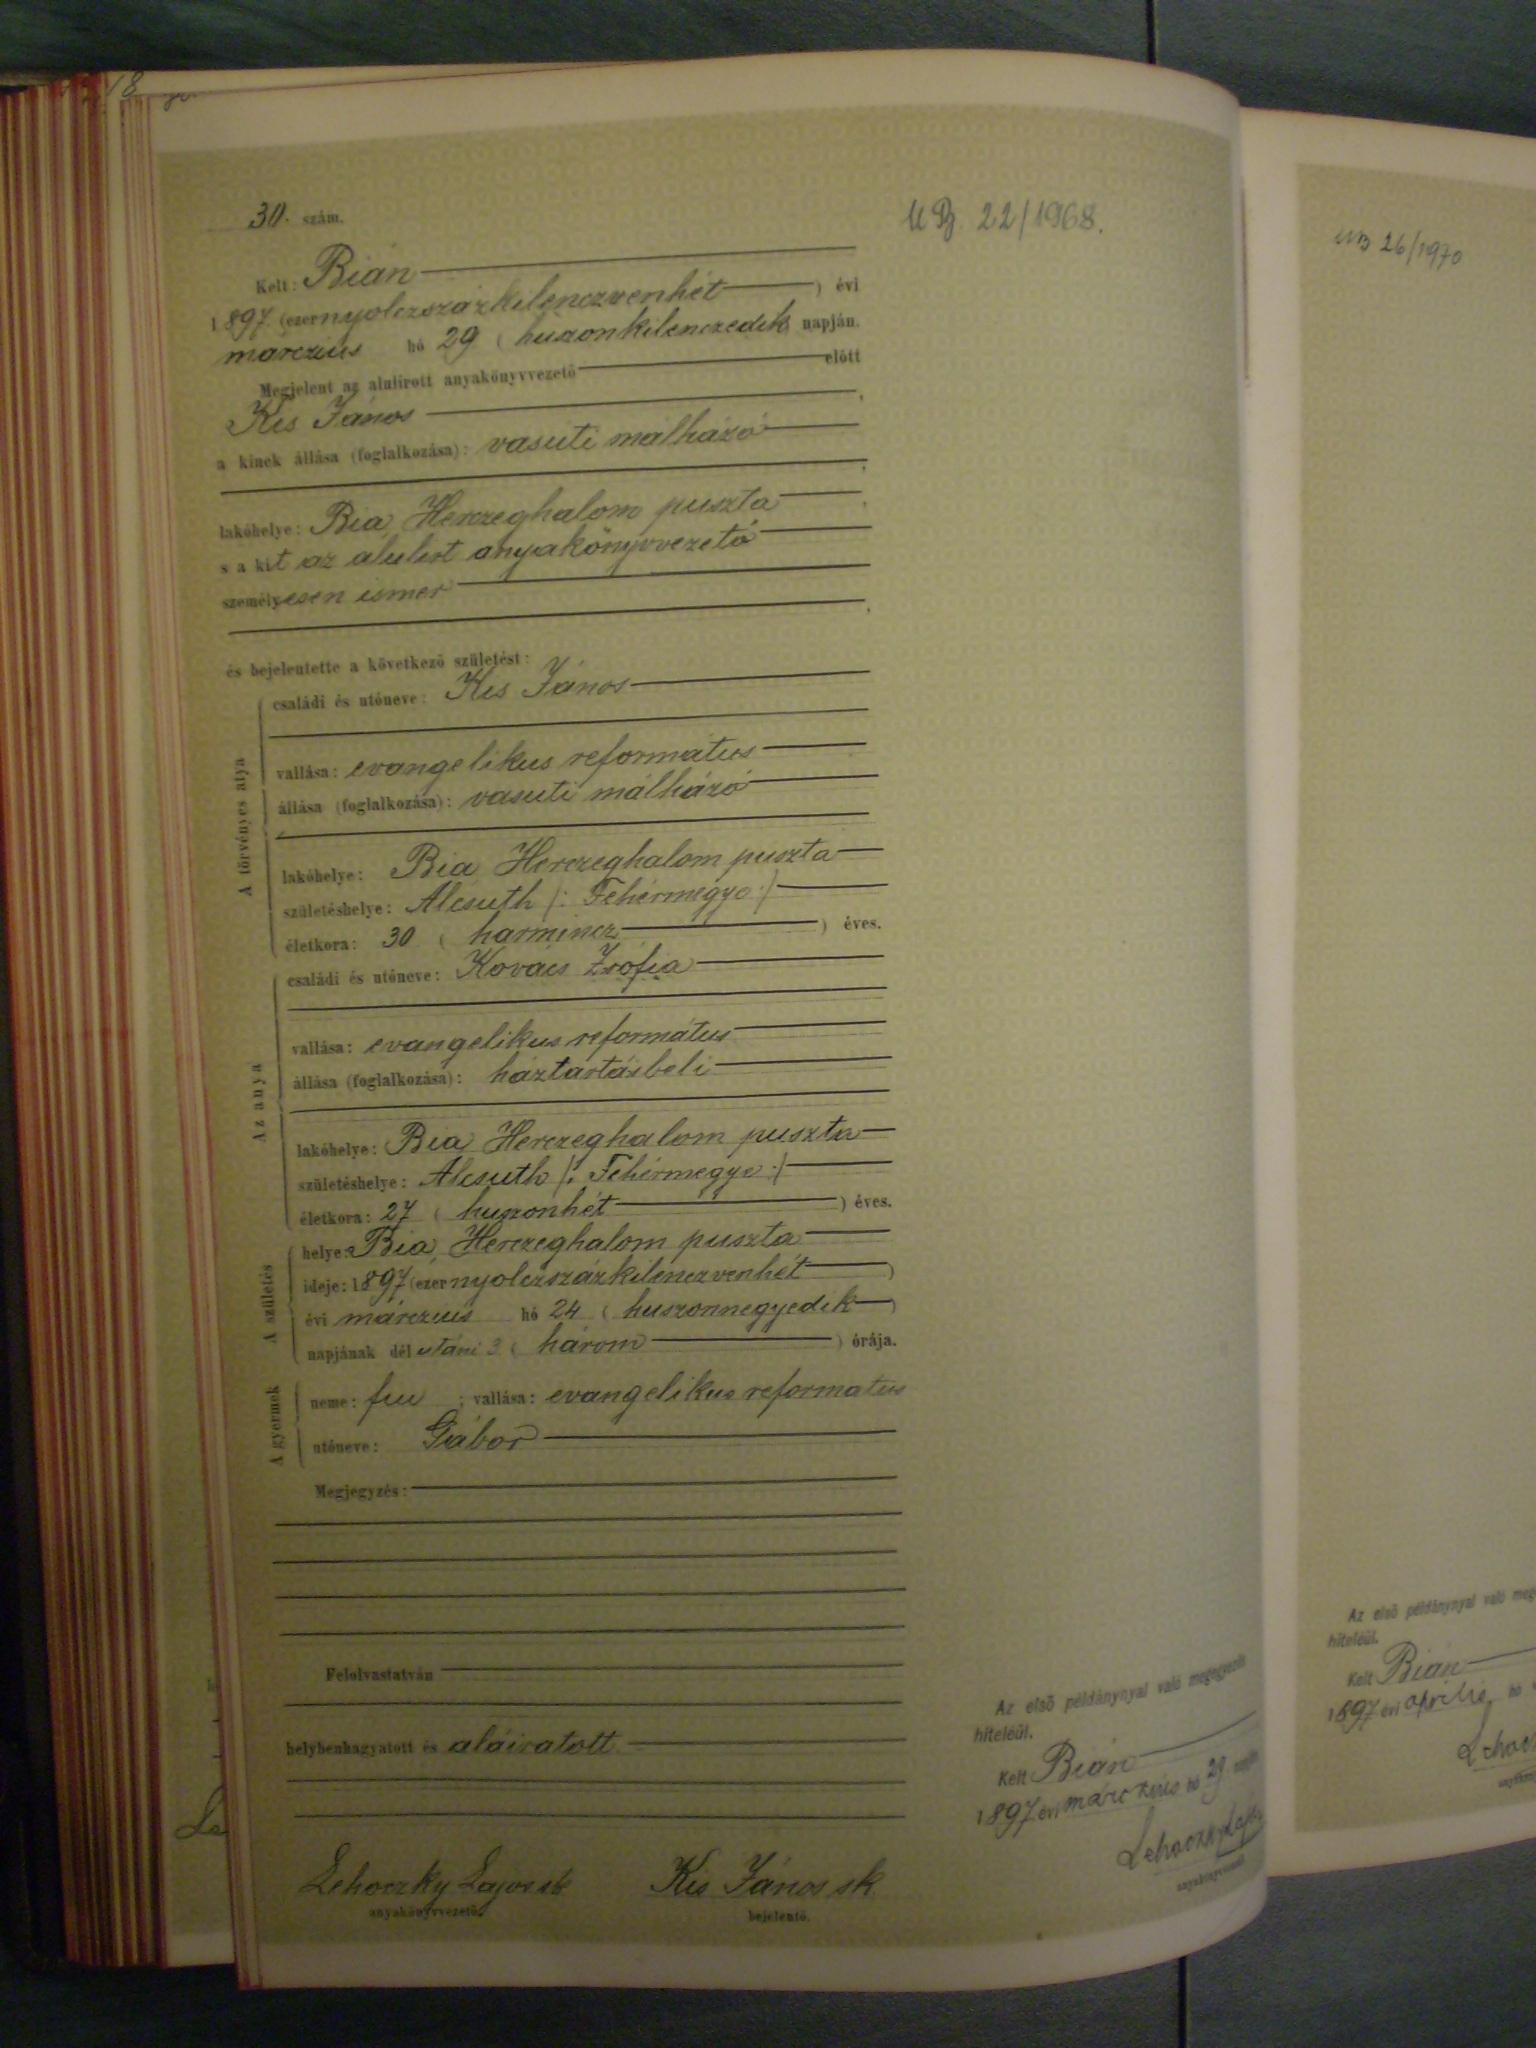 18
30. szám.
U B 22/1968.
Kelt: Bián
1897. (ezer nyolczszázkilenczvenhét) évi
márczius hó 29 (huszonkilenczedik) napján.
Megjelent az alulírott anyakönyvvezető előtt
Kis János,
a kinek állása (foglalkozása): vasuti málházó
lakóhelye: Bia, Herczeghalom puszta,
s a kit az alulirt anyakönyvvezető
személyesen ismer
és bejelentette a következő születést:
A törvényes atya
családi és utóneve: Kis János
vallása: evangelikus református
állása (foglalkozása): vasuti málházó
lakóhelye: Bia, Herczeghalom puszta
születéshelye: Alcsuth /: Fehérmegye :/
életkora: 30 (harmincz) éves.
Az anya
családi és utóneve: Kovács Zsófia
vallása: evangelikus református
állása (foglalkozása): háztartásbeli
lakóhelye: Bia, Herczeghalom puszta
születéshelye: Alcsuth /: Fehérmegye :/
életkora: 27 (huszonhét) éves.
A születés
helye: Bia, Herczeghalom puszta
ideje: 1897 (ezer nyolczszázkilenczvenhét)
évi márczius hó 24 (huszonnegyedik)
napjának dél utáni 3 (három) órája.
A gyermek
neme: fiu; vallása: evangelikus református
utóneve: Gábor
Megjegyzés:
Felolvastatván
helybenhagyatott és aláiratott
Lehoczky Lajos sk
anyakönyvvezető.
Kis János sk.
bejelentő.
Az első példánynyal való megegyezés
hiteléül.
Kelt Bián
1897 évi márczius hó 29 napján
Lehoczky Lajos
anyakönyvvezető
UB 26/1970
Az első példánynyal való
hiteléül.
Kelt Bián
1897 évi április hó